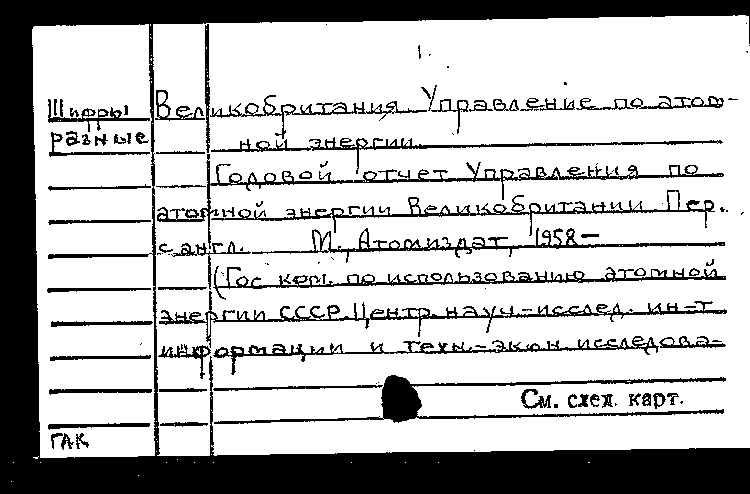 1.
Шифры Великобритания. Управление по атом-
разные ной энергии.
Годовой отчет Управления по
атомной энергии Великобритании. Пер.
с англ. М., Атомиздат, 1958—
(Гос. ком. по использованию атомной
энергии СССР. Центр. науч.-исслед. ин-т
информации и техн.-экон. исследова-
См. след. карт.
ГАК